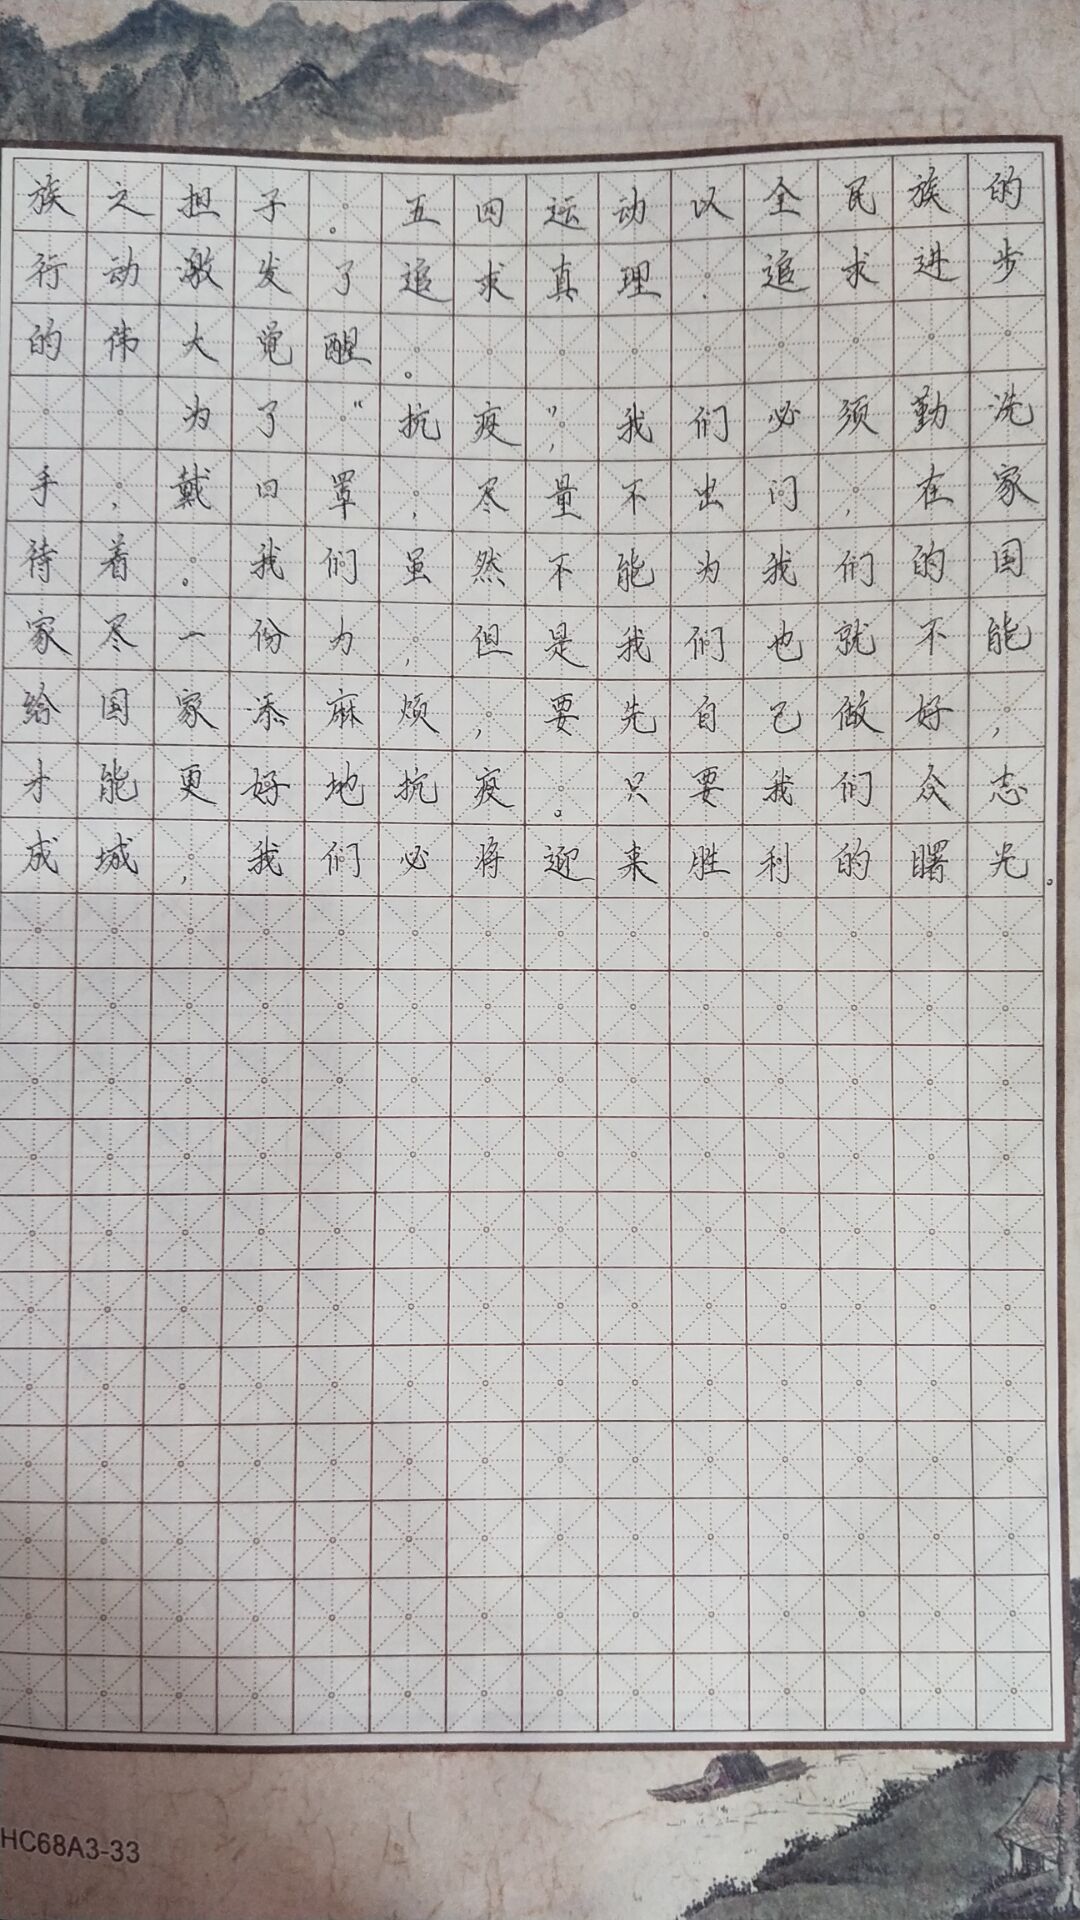 族之担子。五四运动以全民族的
行动激发了追求真理、追求进步
的伟大觉醒。
为了“抗疫”，我们必须勤洗
手，戴口罩，尽量不出门，在家
待着。我们虽然不能为我们的国
家尽一份力，但是我们也就不能
给国家添麻烦，要先自己做好，
才能更好地抗疫。只要我们众志
成城，我们必将迎来胜利的曙光。
HC68A3-33